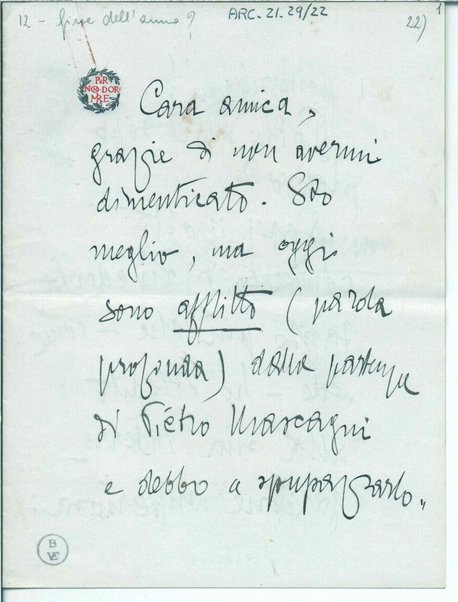 12 - fine dell'anno?
ARC. 21. 29/22
22)
1
PER
NON DOR
MIRE
Cara amica,
grazie di non avermi
dimenticato. Sto
meglio, ma oggi
sono afflitto (parola
profonda) dalla partenza
di Pietro Mascagni
e debbo a
B
VE